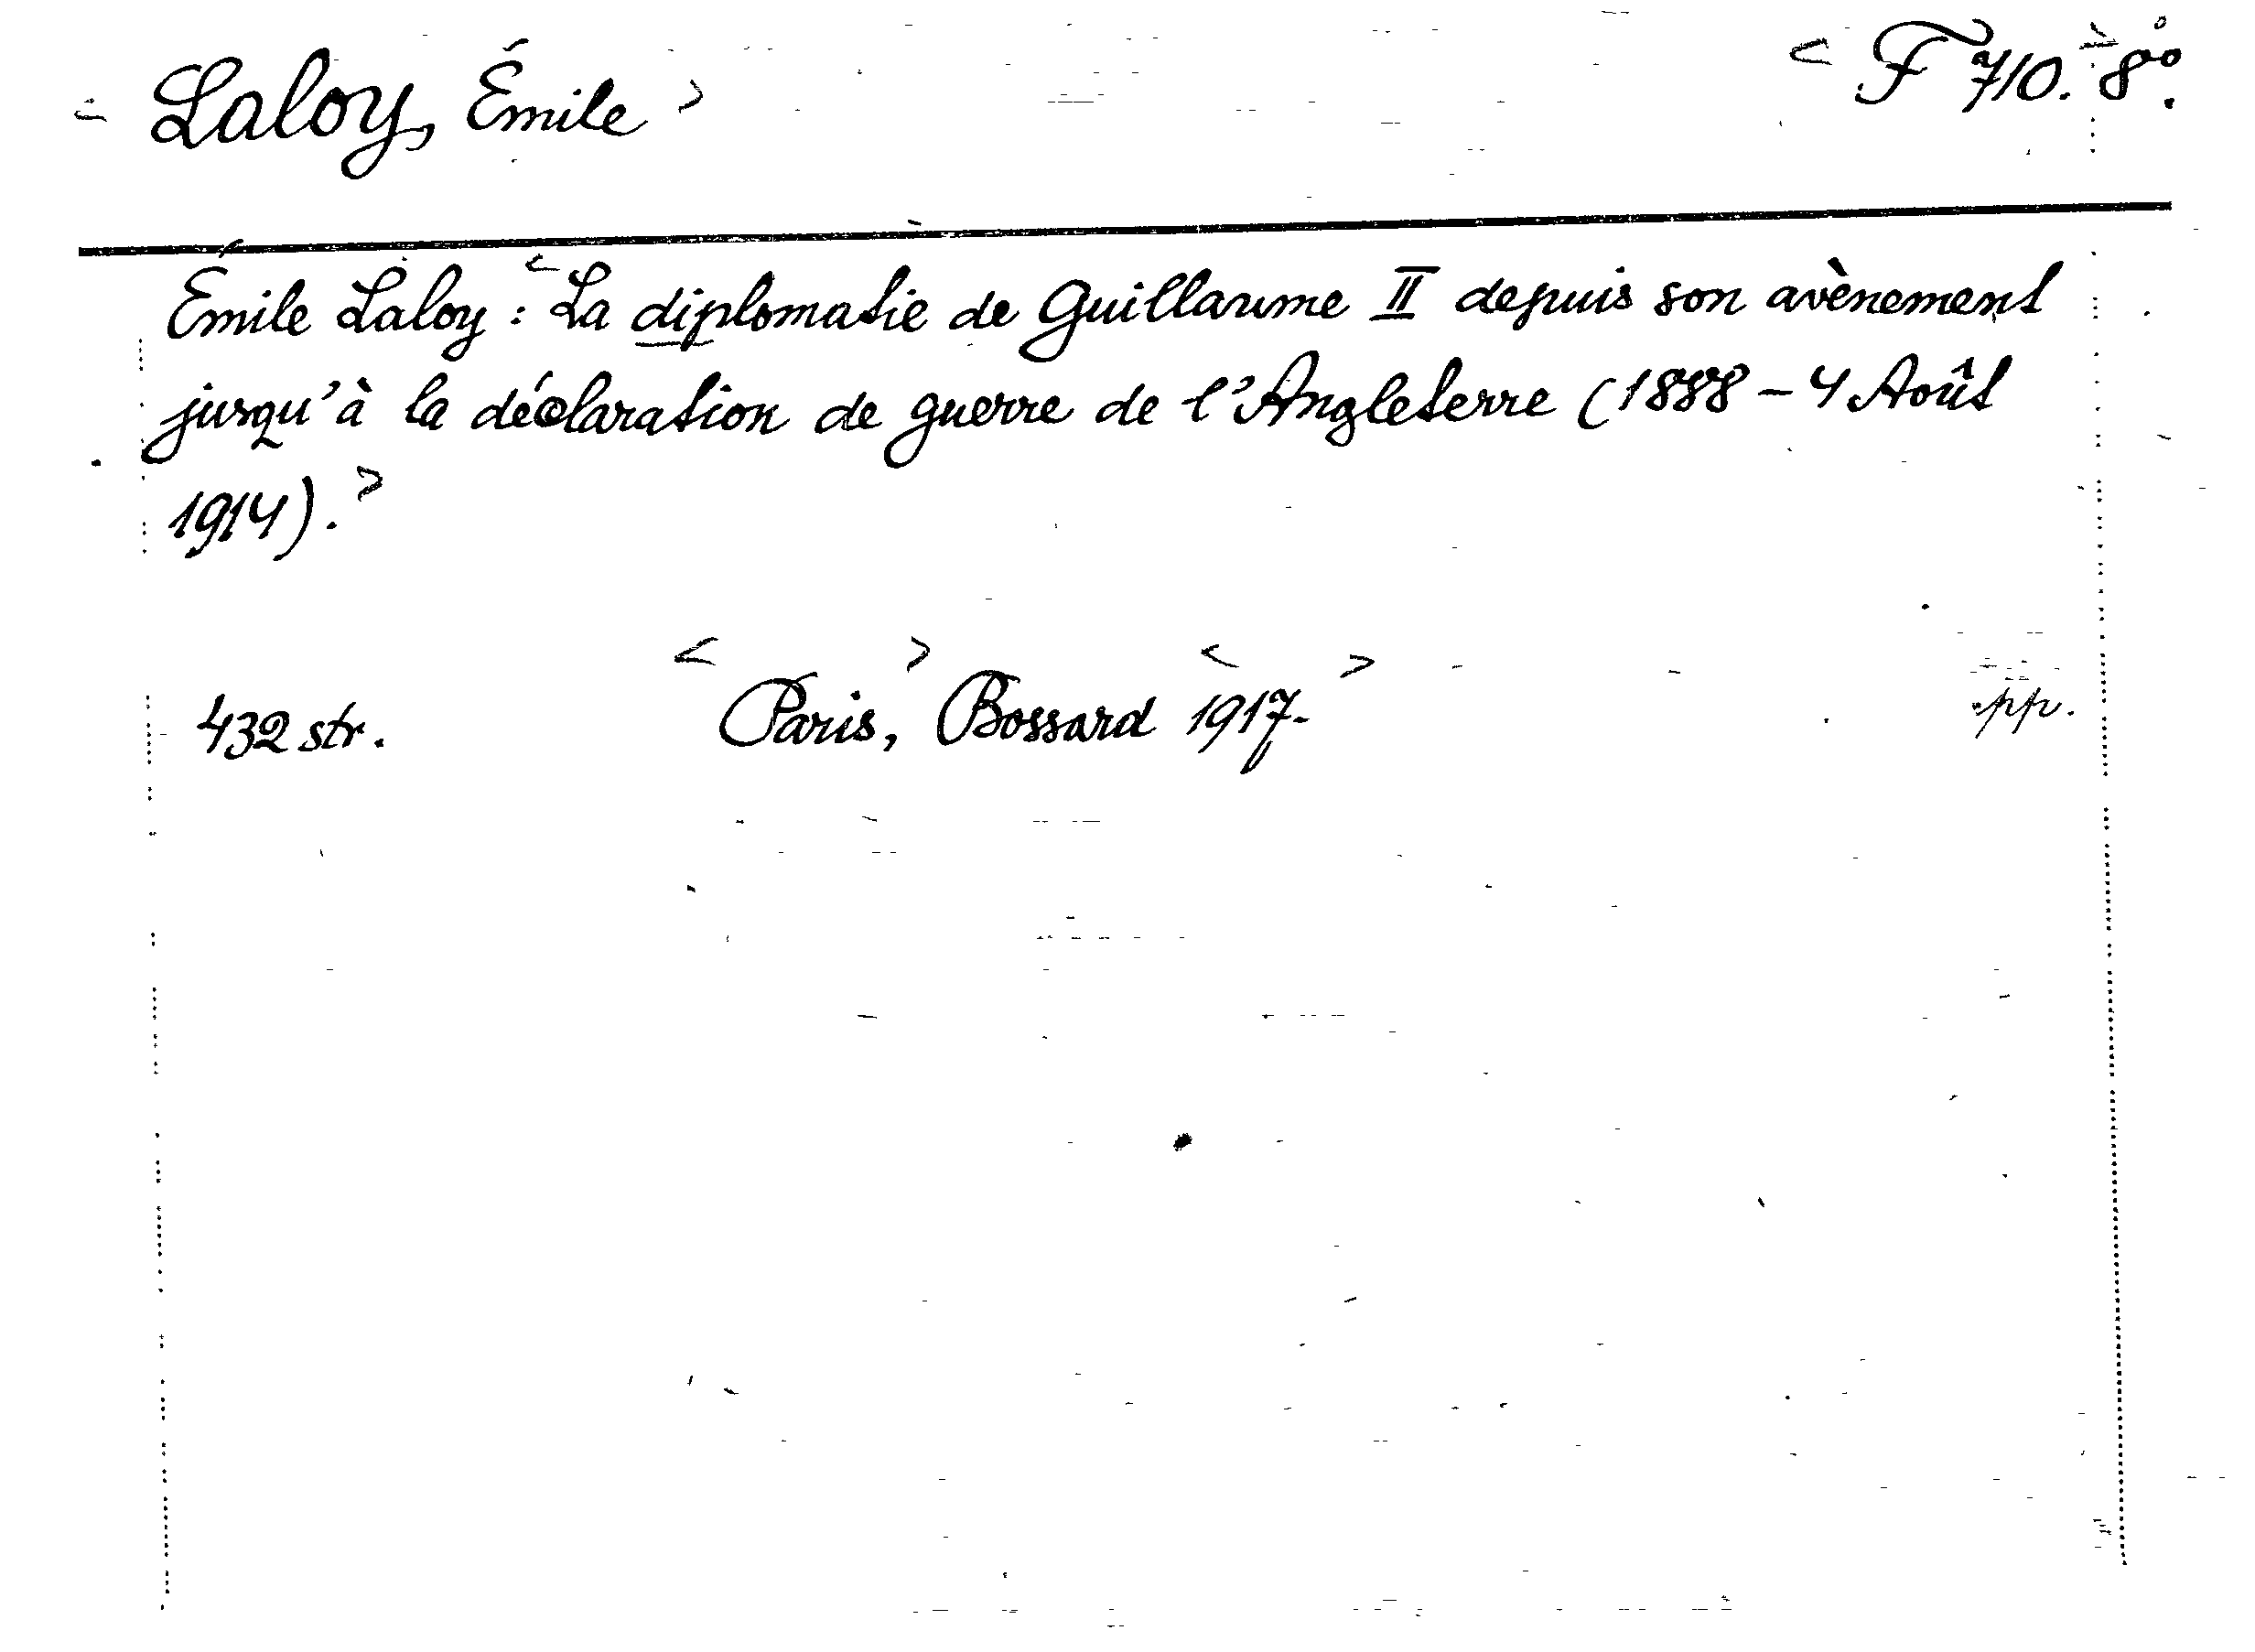 < Laloy, Émile > < F 710. > 8°.
Émile Laloy : < La diplomatie de Guillaume II depuis son avènement
jusqu'à la déclaration de guerre de l'Angleterre (1888 - 4 Août
1914). >
432 str. < Paris, > Bossard < 1917. > opp.